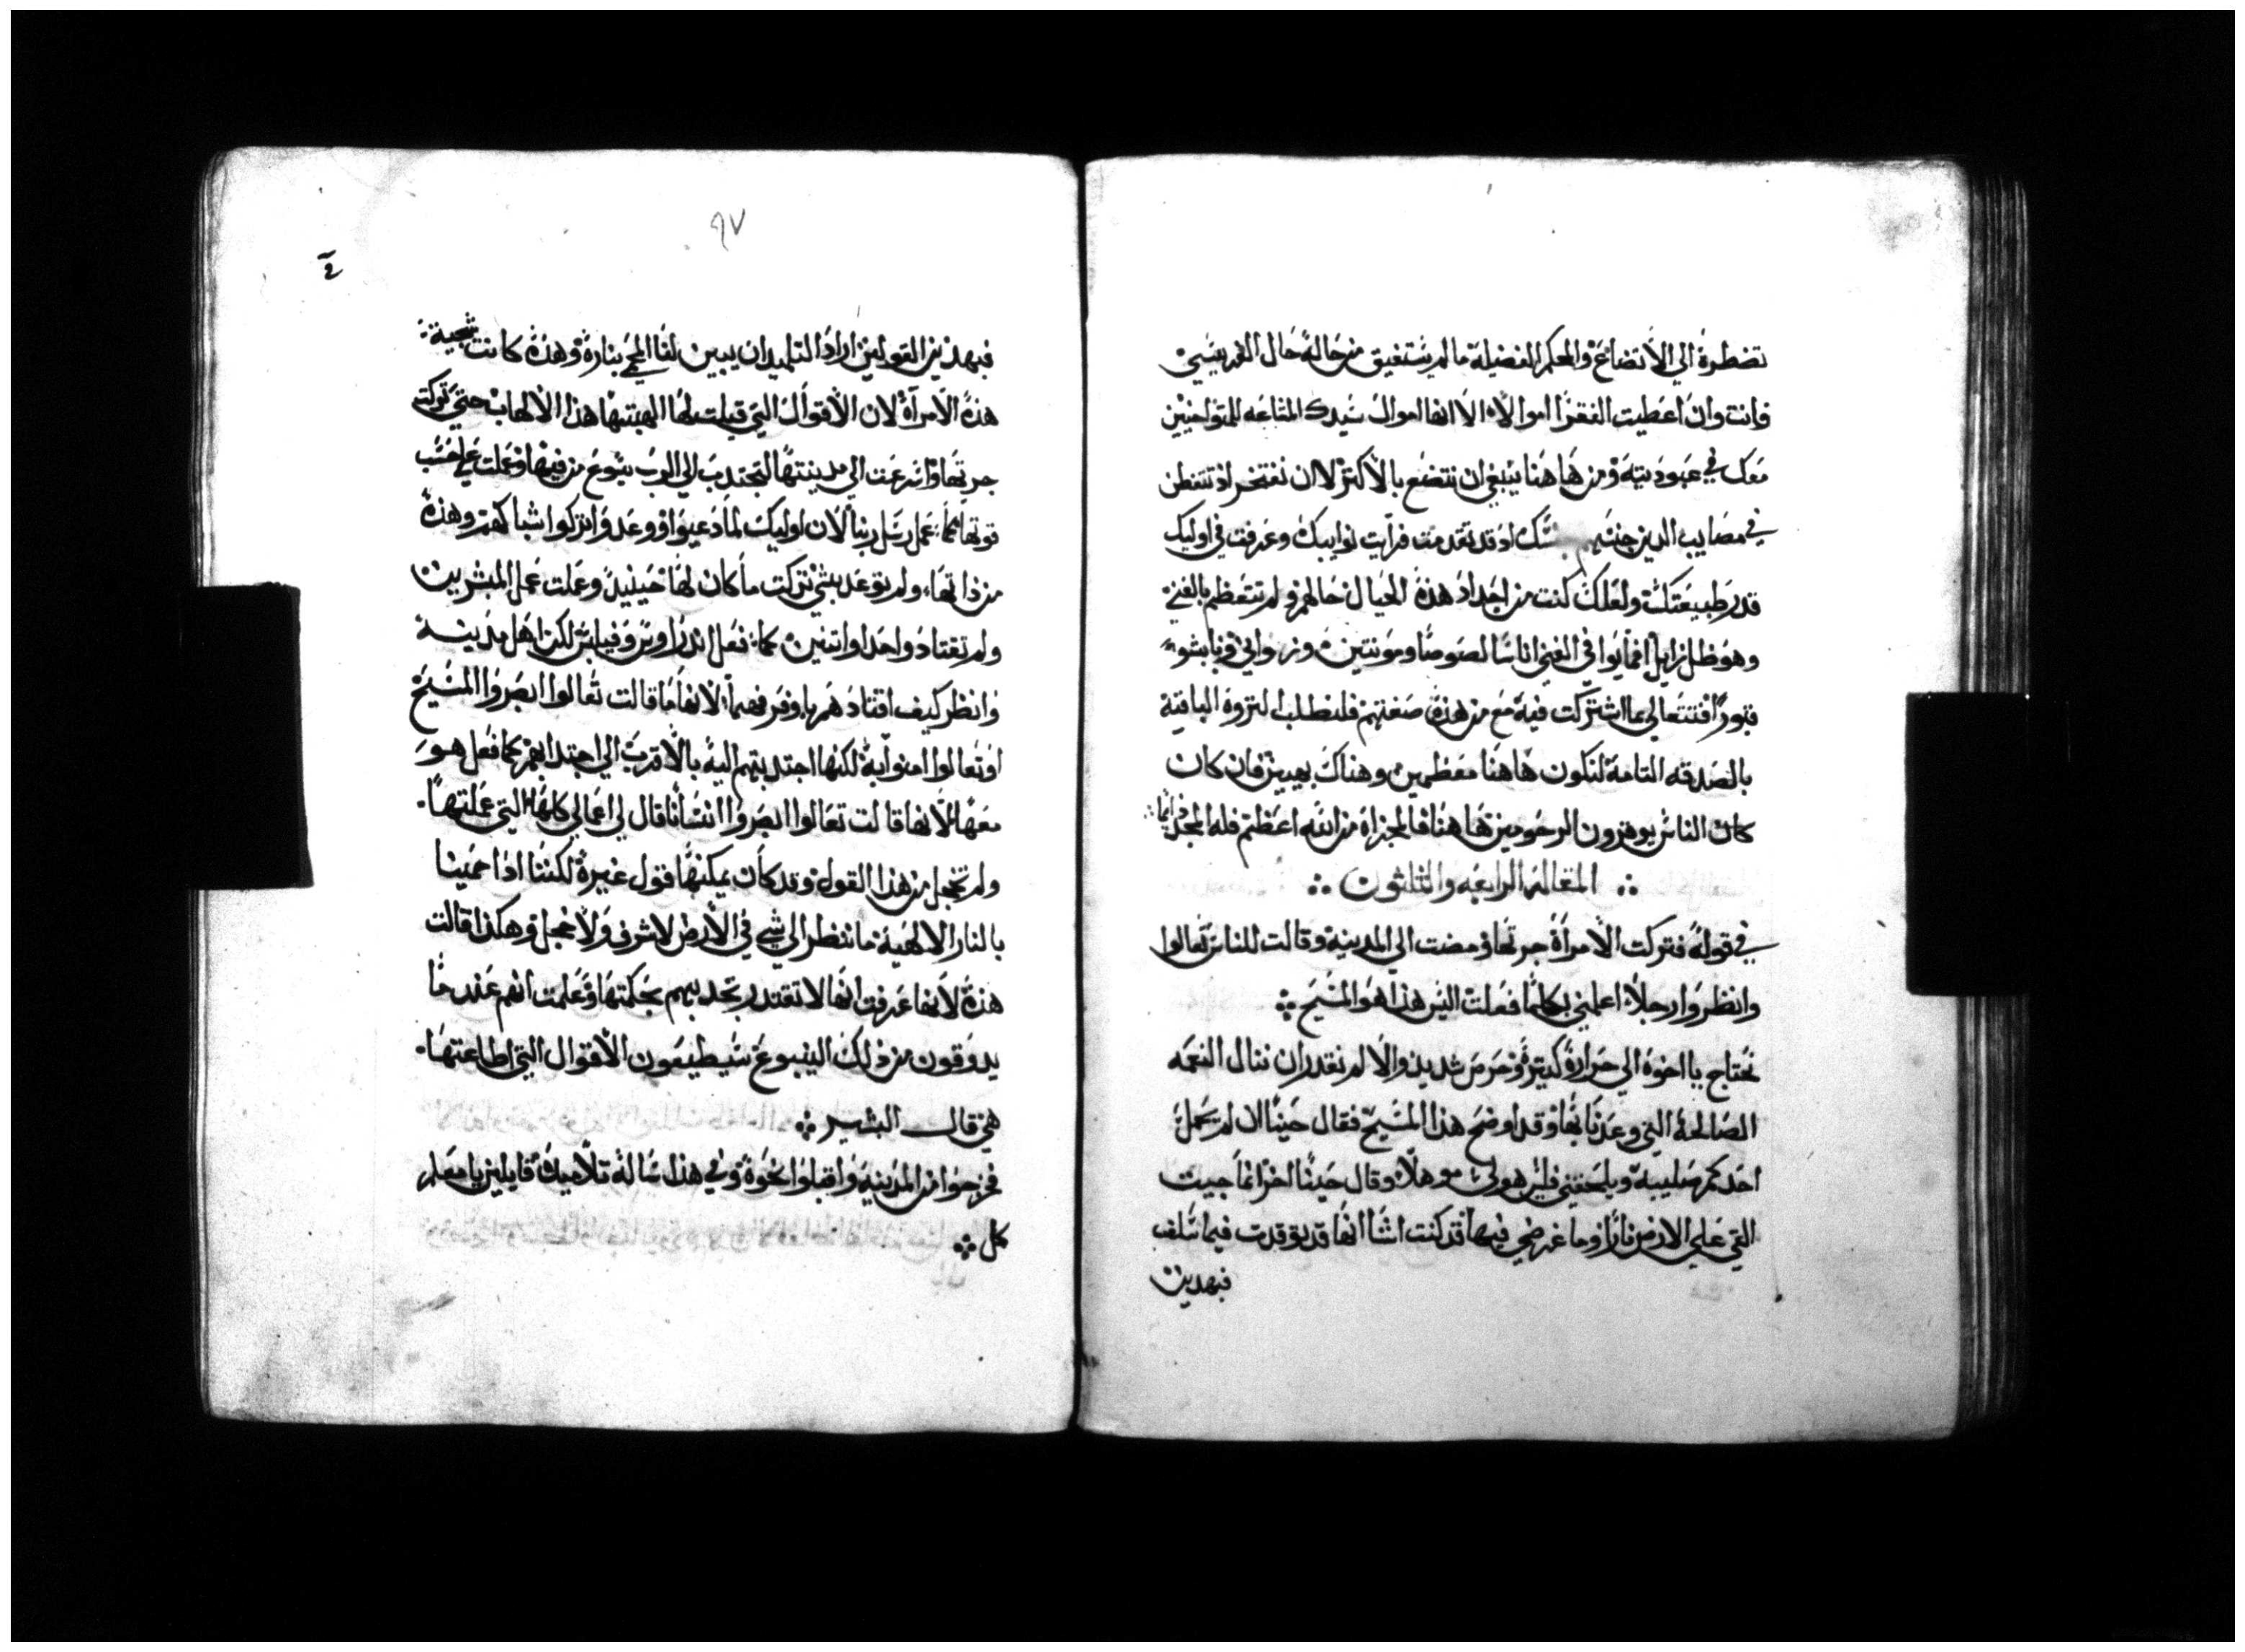 تضطره الي الاتضاع والحكم الفضيلة ما لم تستفيق من حاله حال القديسي
فانت وان اعطيت الفقرا اموالا الا انها اموال سيدك المشاعه للمتواخيين
معك في عبوديته ومن هاهنا ينبغي ان نتضع بالاكتر لا ان نفتخر اذ تتفطن
في مصايب الدين جنسهم جنسك اذ قد تقدمت فرايت نوايبك وعرفت في اوليك
قدر طبيعتك ولعلك كنت من اجداد هذه الحيال حالهم ولم تتعظم بالغني
وهو ظل زايل انما يوا في الغني اناسا لصوصا ومونتين وزواني ونابشو
قبورا افتتعالي عما اشتركت فيه مع من هذه صفتهم فلنطلب التروه الباقية
بالصدقه التامة لنكون هاهنا معظمين وهناك بهيين فان كان
كان الناس يوهزون الرحومين هاهنا فالمجزاة من الله اعظم فله المجد دايما
المقاله الرابعه والثلثون
في قوله فتركت الامراة جرتها ومضت الي المدينة وقالت للناس تعالوا
وانظروا رجلا اعلمني بكلما فعلت اليس هذا هو المسيح
نحتاج يا اخوة الي حرارة كتيرة وحرص شديد والا لم نقدر ان ننال النعمه
الصالحة التي وعدنا بها وقد اوضح هذا المسيح فقال حينا ان لم يحمل
احدكم صليبه ويلحقني فليس هو لي موهلا وقال حينا اخر انما جيت
القي علي الارض نارا وما غرضي فيها قد كنت اشا انها قد توقدت فيما سلف
فبهدين
٩٧
فبهذين القولين اراد التلميد ان يبين لنا المحمي بناره وهذه كانت سجية
هذه الامراة لان الاقوال التي قيلت لها الهبتها هذا الالهاب حتي تركت
جرتها واسرعت الي مدينتها لتجتدب الي الرب يسوع من فيها وعملت علي حسب
قوتها كما عمل رسل ربنا لان اوليك لما دعيوا ووعدوا تركوا شباكهم وهذه
من ذاتها ولم توعد بشي تركت ما كان لها حينيد وعملت عمل المبشرين
ولم تقتاد واحدا او اتنين كما فعل اندراوس وفيلبس لكن اهل مدينة
وانظر كيف اقتادهم باوفر فهما لانها ما قالت تعالوا ابصروا المسيح
او تعالوا امنوا به لكنها اجتدبتهم اليه بالاقرب الي اجتدابهم كما فعل هو
معها لانها قالت تعالوا ابصروا انسانا قال لي اعمالي كلها التي عملتها
ولم تخجل من هذا القول وقد كان يمكنها قول غيره لكننا اذا حمينا
بالنار الالهية ما ننظر الي شي في الارض لا شرف ولا خجل وهكذا قالت
هذه لانها عرفت انها لا تقتدر تجدبهم بحكمتها وعلمت انهم عند ما
يدوقون من ذلك الينبوع سيطيعون الاقوال التي اطاعتها
هي قال البشير
فخرجوا من المدينة واقبلوا نحوه وفي هذا ساله تلاميذه قايلين يا معلم
كل